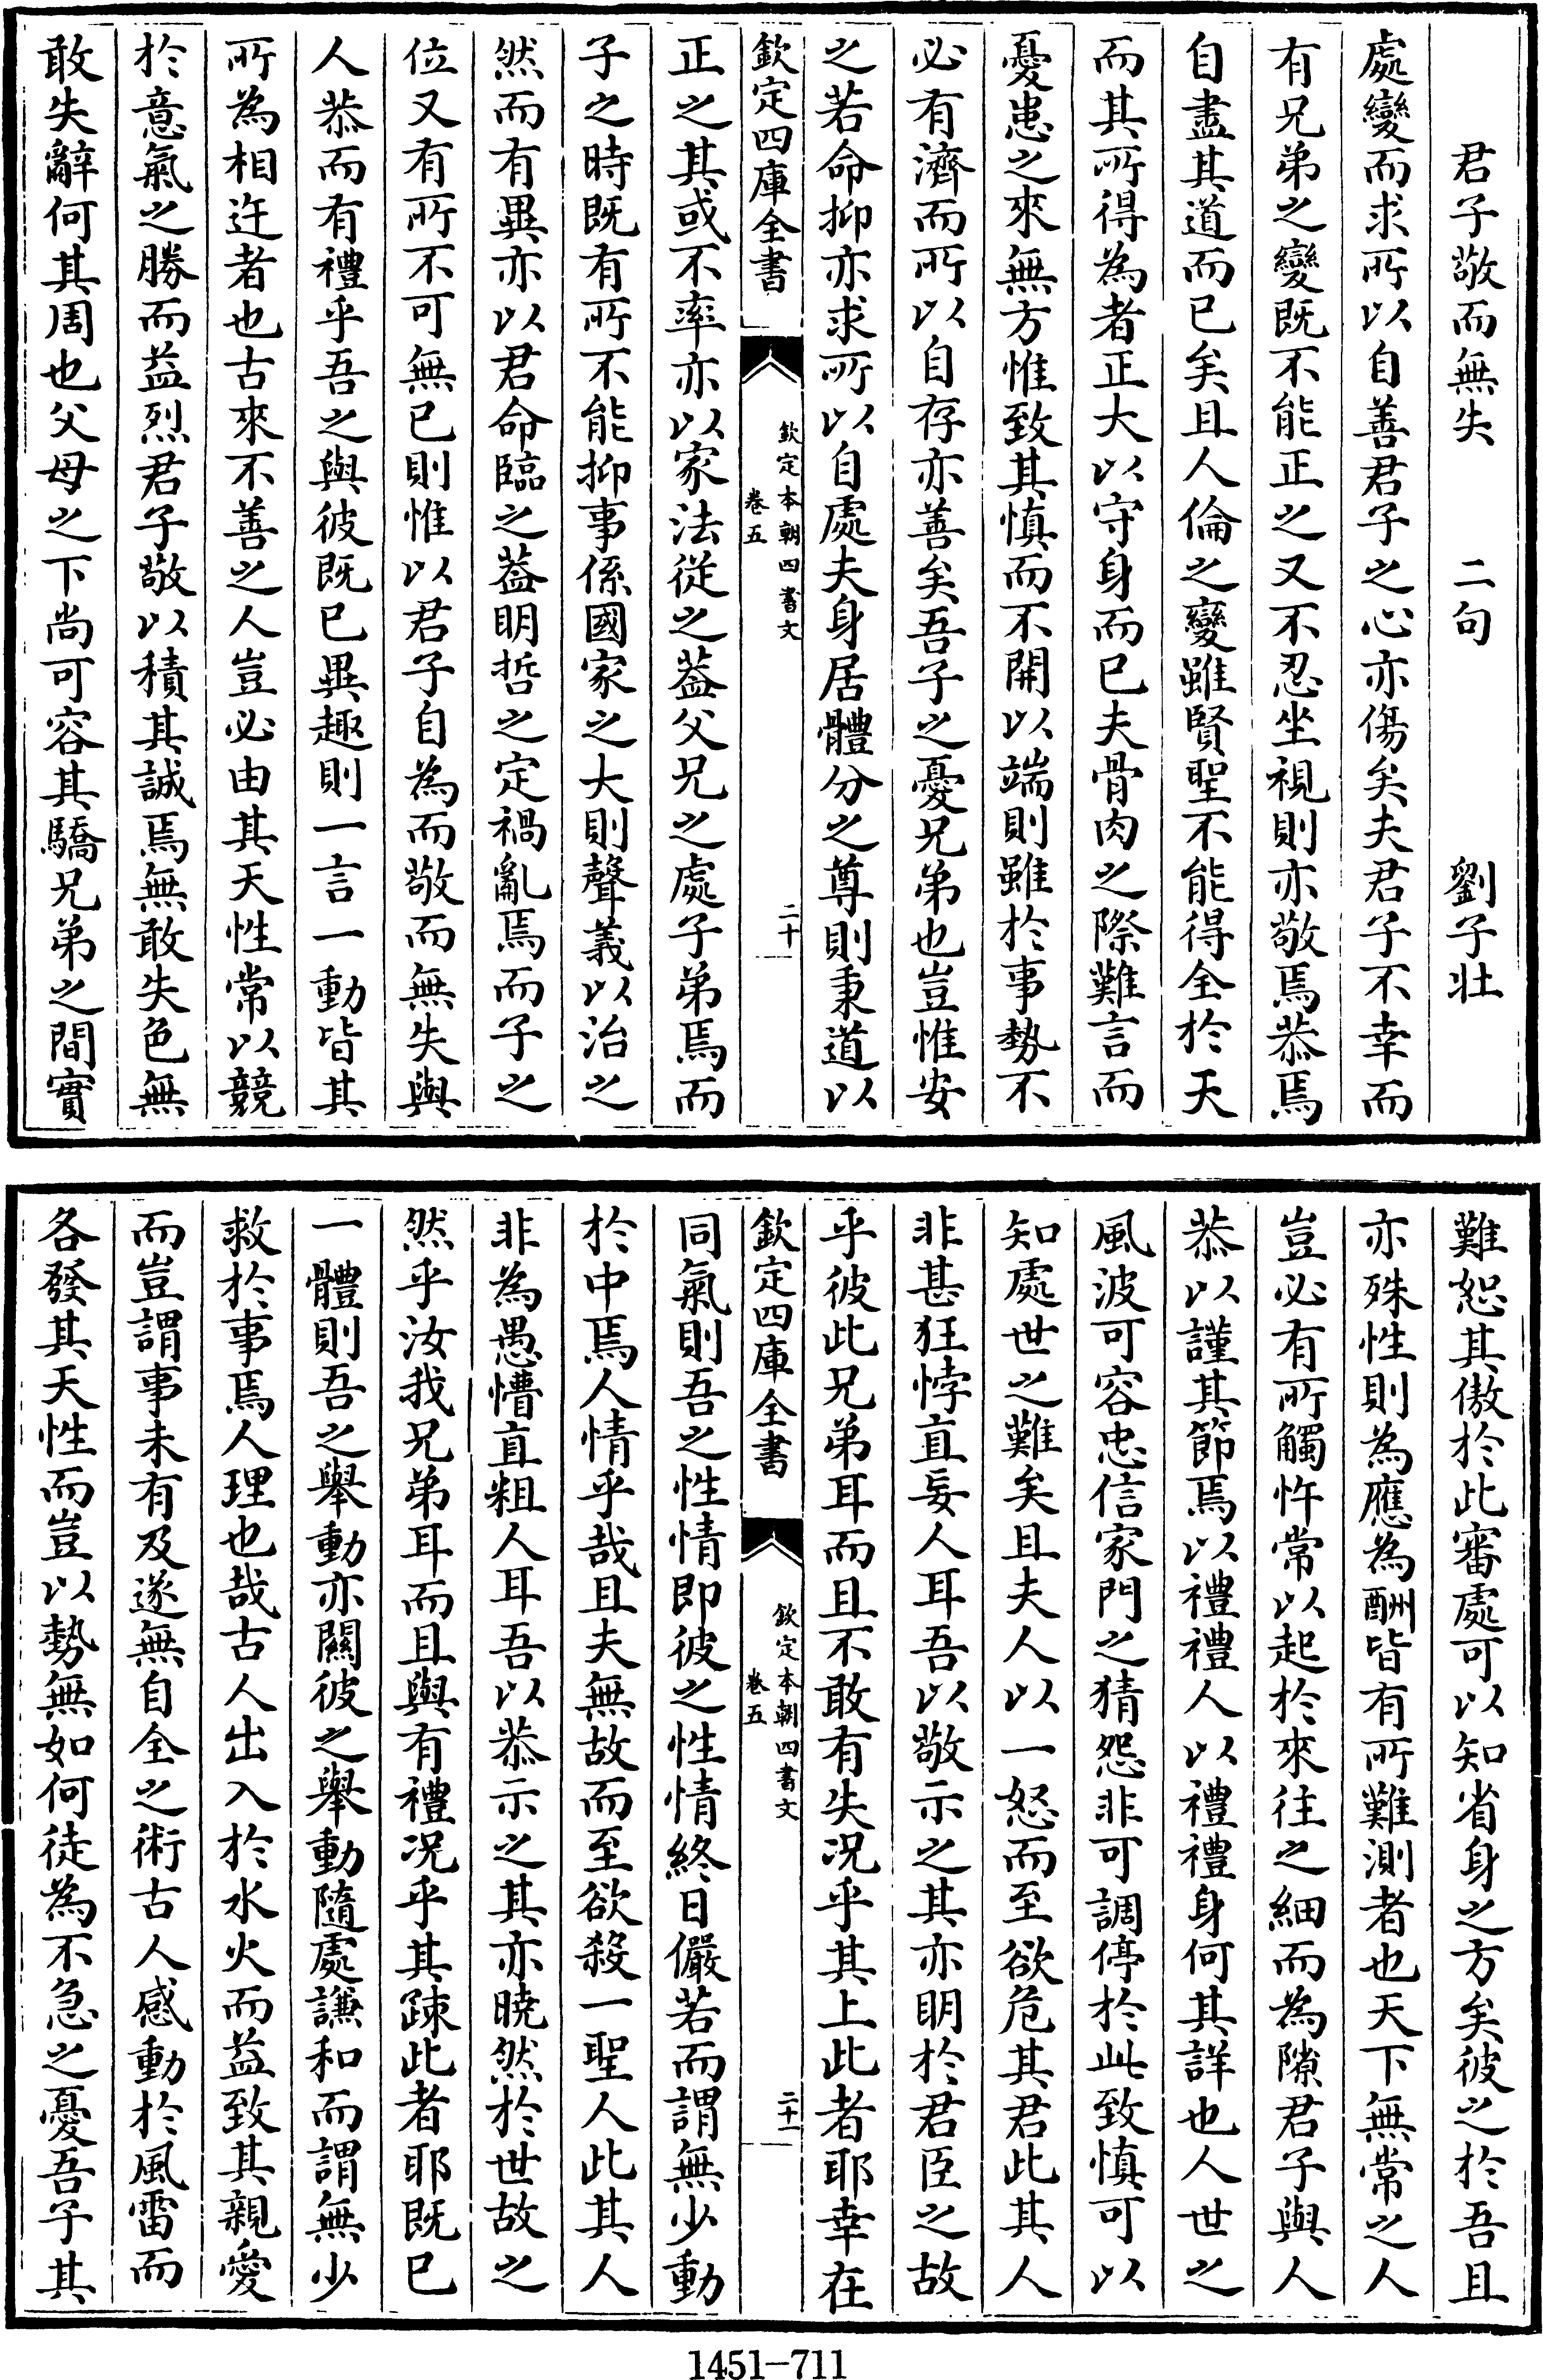 君子敬而無失　二句　劉子壯
處變而求所以自善君子之心亦傷矣夫君子不幸而
有兄弟之變既不能正之又不忍坐視則亦敬焉恭焉
自盡其道而已矣且人倫之變雖賢聖不能得全於天
而其所得為者正大以守身而已夫骨肉之際難言而
憂患之來無方惟致其慎而不開以端則雖於事勢不
必有濟而所以自存亦善矣吾子之憂兄弟也豈惟安
之若命抑亦求所以自處夫身居體分之尊則秉道以
欽定四庫全書
欽定本朝四書文
卷五
二十
正之其或不率亦以家法從之葢父兄之處子弟焉而
子之時既有所不能抑事係國家之大則聲義以治之
然而有異亦以君命臨之葢明哲之定禍亂焉而子之
位又有所不可無已則惟以君子自為而敬而無失與
人恭而有禮乎吾之與彼既已異趣則一言一動皆其
所為相迕者也古來不善之人豈必由其天性常以競
於意氣之勝而益烈君子敬以積其誠焉無敢失色無
敢失辭何其周也父母之下尚可容其驕兄弟之間實
難恕其傲於此審處可以知省身之方矣彼之於吾且
亦殊性則為應為酬皆有所難測者也天下無常之人
豈必有所觸忤常以起於來往之細而為隙君子與人
恭以謹其節焉以禮禮人以禮禮身何其詳也人世之
風波可容忠信家門之猜怨非可調停於此致慎可以
知處世之難矣且夫人以一怒而至欲危其君此其人
非甚狂悖直妄人耳吾以敬示之其亦明於君臣之故
乎彼此兄弟耳而且不敢有失况乎其上此者耶幸在
欽定四庫全書
欽定本朝四書文
卷五
二十一
同氣則吾之性情即彼之性情終日儼若而謂無少動
於中焉人情乎哉且夫無故而至欲殺一聖人此其人
非為愚懵直粗人耳吾以恭示之其亦曉然於世故之
然乎汝我兄弟耳而且與有禮况乎其疎此者耶既已
一體則吾之舉動亦關彼之舉動隨處謙和而謂無少
救於事焉人理也哉古人出入於水火而益致其親愛
而豈謂事未有及遂無自全之術古人感動於風雷而
各發其天性而豈以勢無如何徒為不急之憂吾子其
1451-711